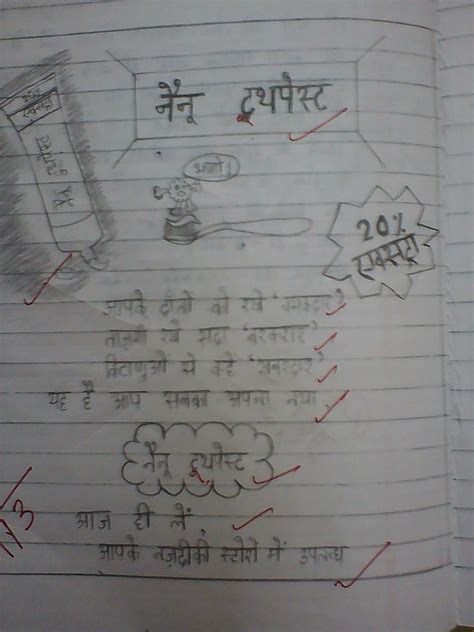 नैनू टूथपेस्ट
भागो!
20%
एक्स्ट्रा
आपके दाँतो को रखे 'चमकदार'
ताज़गी रखे सदा 'बरकरार'
किटाणुओं से कहें 'खबरदार'
यह है आप सबका अपना नया
नैनू टूथपेस्ट
आज ही लें,
आपके नज़दीकी स्टोरों में उपलब्ध